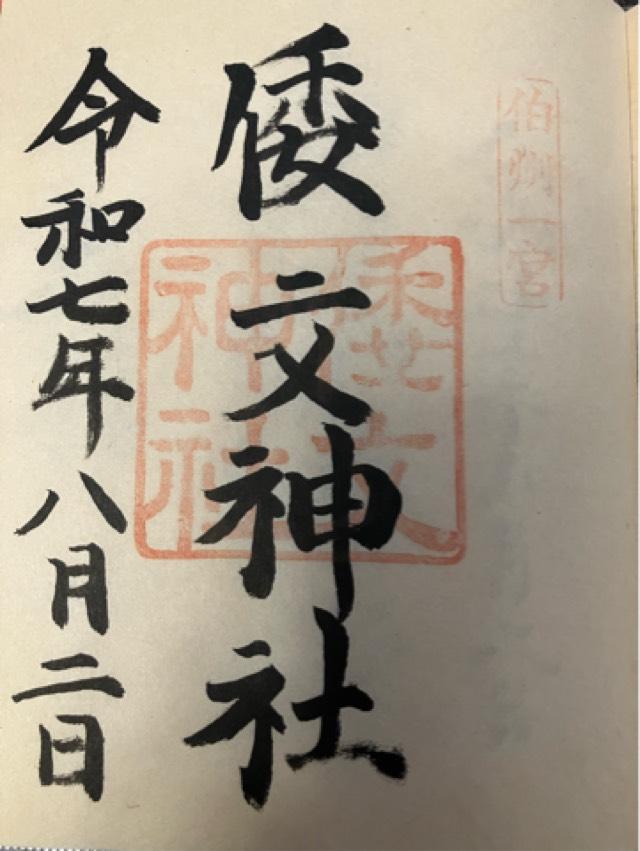 伯州一宮
倭文神社
倭文神社
令和七年八月二日